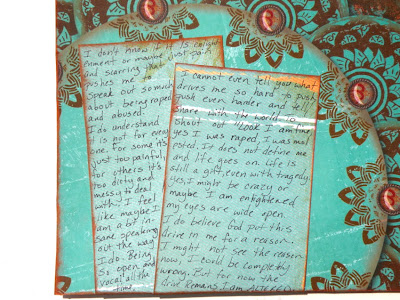 I don't know if it is enlight
enment or maybe just pain
and scarring that
pushes me to
speak out so much
about being raped
and abused.
I do understand
it is not for every
one. For some it's
just too painful,
for others it's
too dirty and
messy to deal
with. I feel
like maybe I
am a bit in-
sane speaking
out the way
I do. Being
so open and
vocal all the
time.
I cannot even tell you what
drives me so hard to push
just even harder and tell
share with the world to
shout out "Look I am fine
yes I was raped, I was mol
ested. It does not define me
and life goes on. Life is
still a gift, even with tragedy
yes, I might be crazy or
maybe I am enlightened
my eyes are wide open.
I do believe God put this
drive in me for a reason.
I might not see the reason
now, I could be completely
wrong. But for now the
drive remains. I am ALTERED